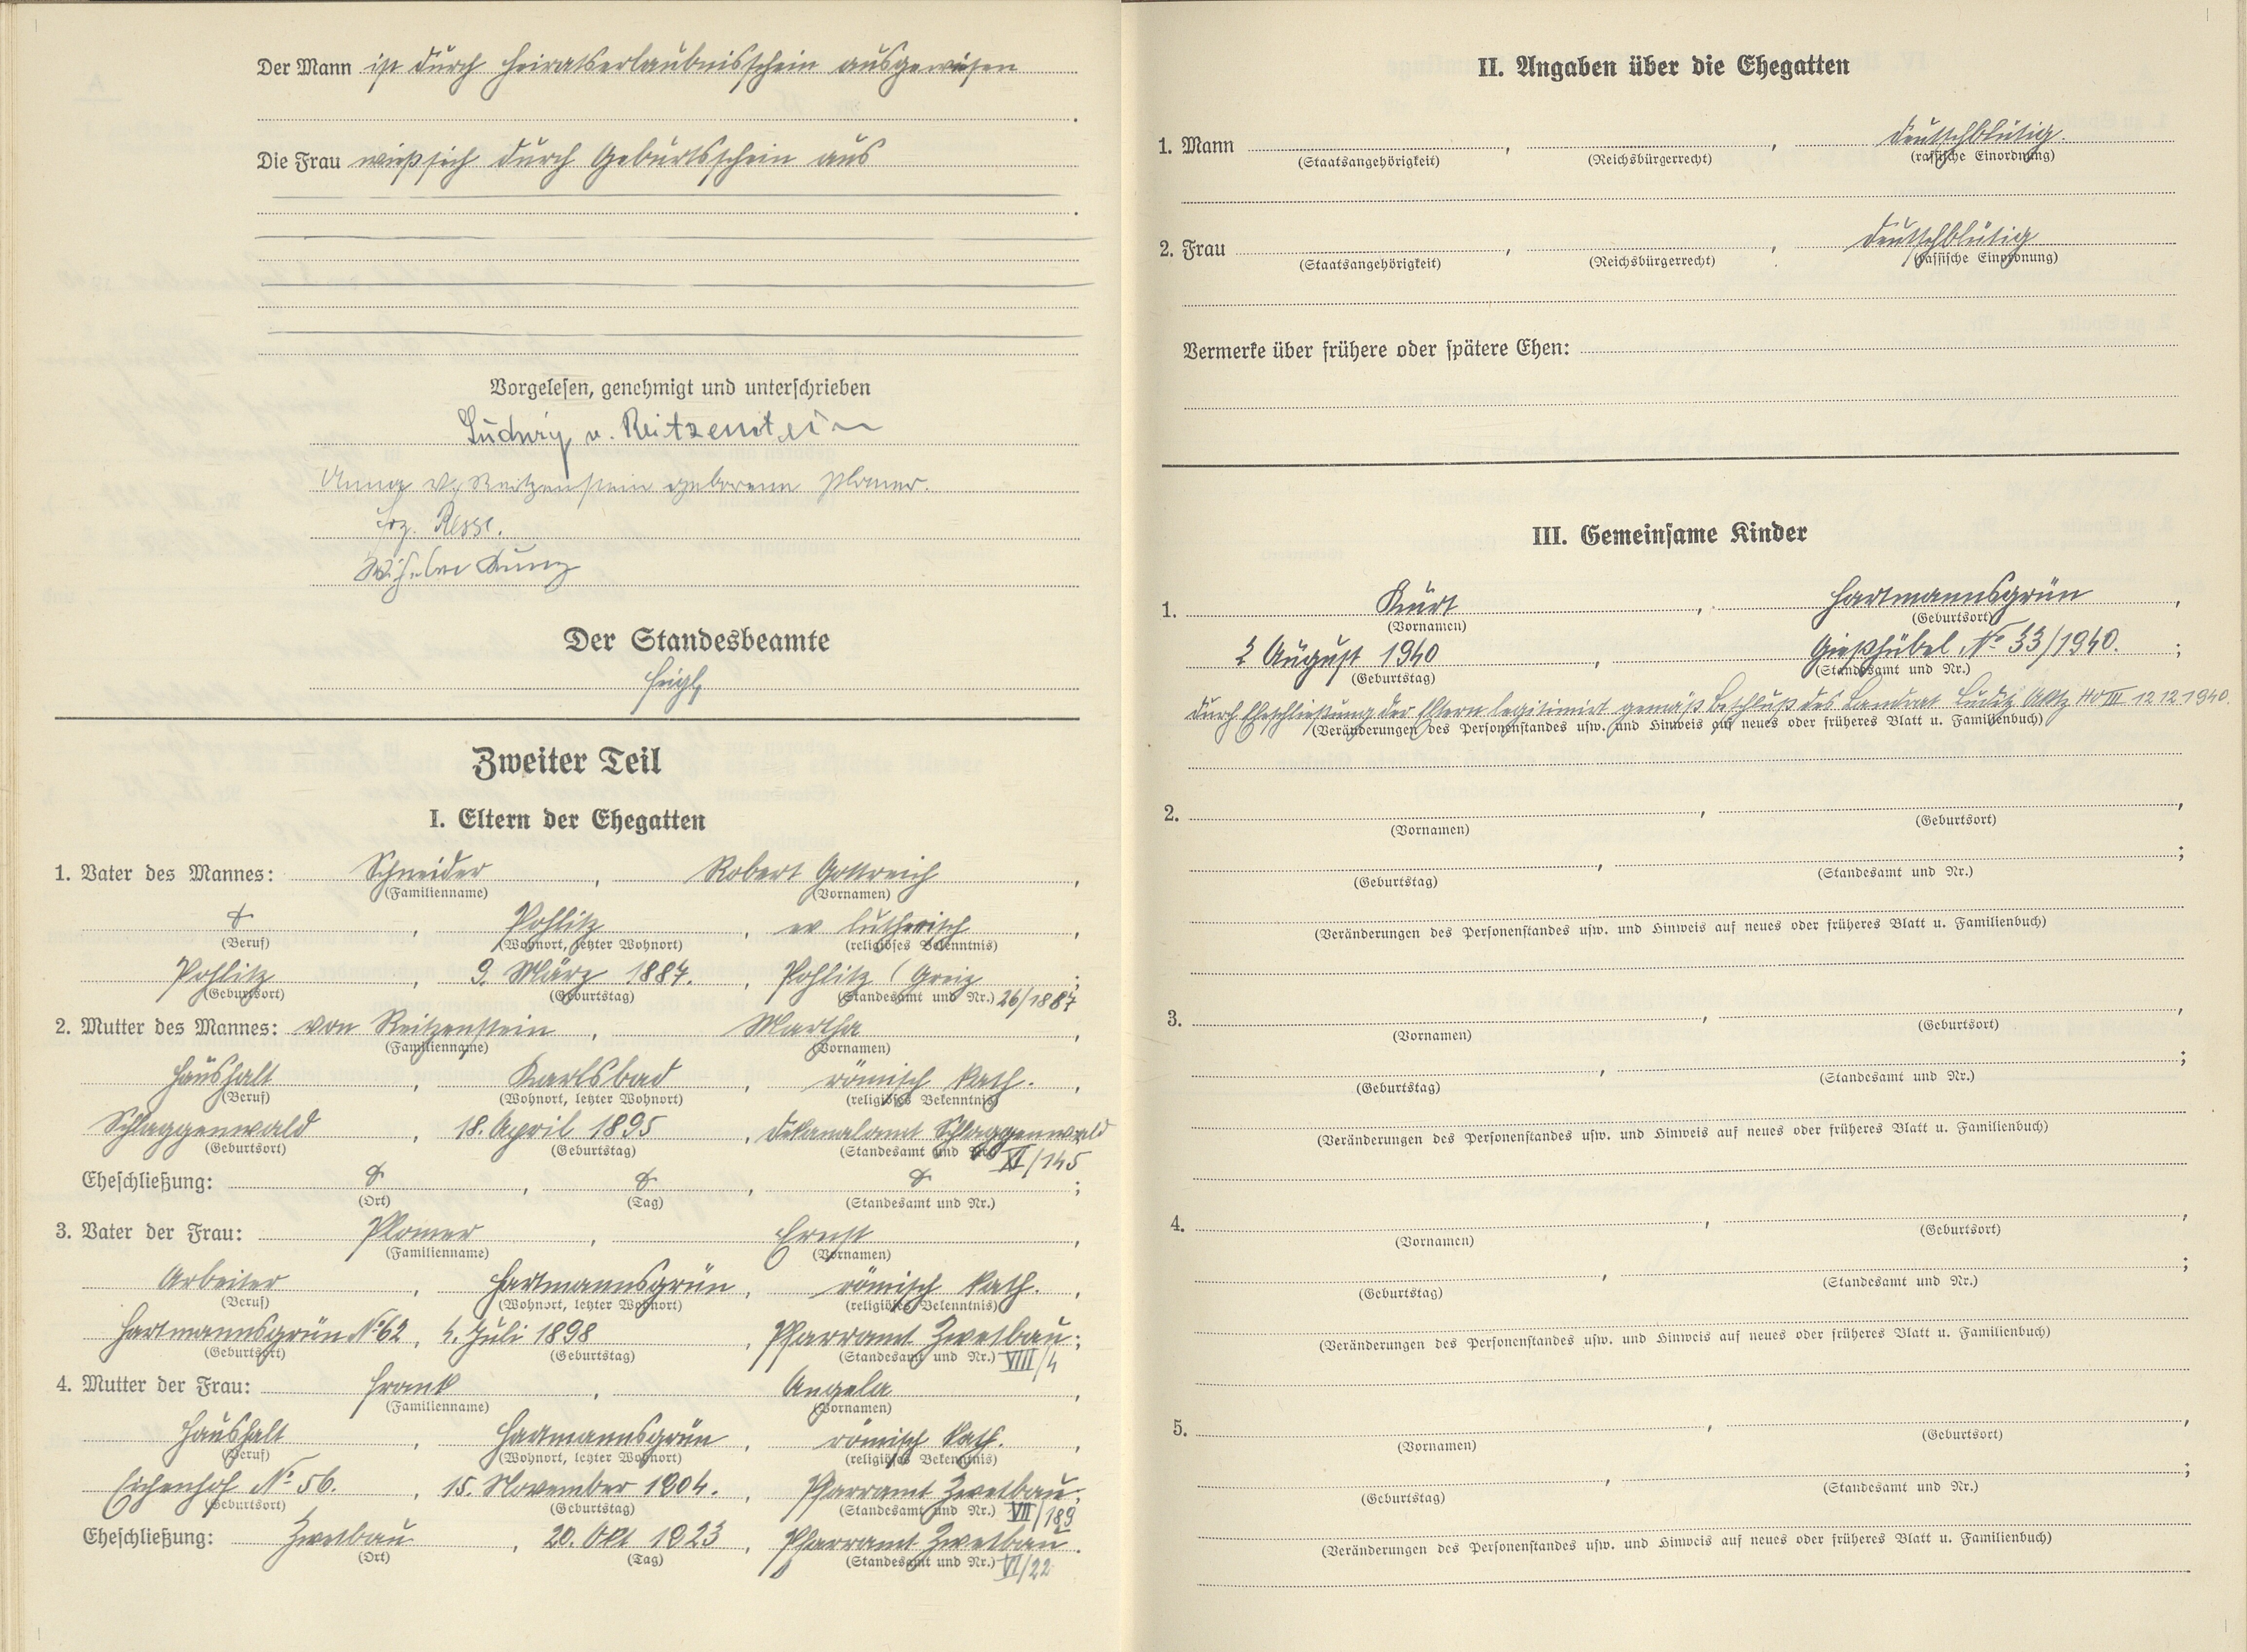 Der Mann ist durch Heiratserlaubnisschein ausgewiesen
.
Die Frau wieß sich durch Geburtsschein aus
.
Vorgelesen, genehmigt und unterschrieben
Ludwig v. Reitzenstein
Anna v. Reitzenstein geborene Plomer.
Frz. Resse.
Wilhelm Kunz
Der Standesbeamte
Feigl
Zweiter Teil
I. Eltern der Ehegatten
1. Vater des Mannes: Schneider, Robert Gottreich,
(Familienname) (Vornamen)
, Pohlitz, ev lutherisch,
(Beruf) (Wohnort, letzter Wohnort) (religiöses Bekenntnis)
Pohlitz, 9. März 1887., Pohlitz (Greiz;
(Geburtsort) (Geburtstag) (Standesamt und Nr.) 26/1887
2. Mutter des Mannes: von Reitzenstein, Martha,
(Familienname) (Vornamen)
Haushalt, Karlsbad, römisch kath.,
(Beruf) (Wohnort, letzter Wohnort) (religiöses Bekenntnis)
Schlaggenwald, 18. April 1895, Dekanalamt Schlaggenwald
(Geburtsort) (Geburtstag) (Standesamt und Nr.) XI/145
Eheschließung: , , ;
(Ort) (Tag) (Standesamt und Nr.)
3. Vater der Frau: Plomer, Ernst,
(Familienname) (Vornamen)
Arbeiter, Hartmannsgrün, römisch kath.,
(Beruf) (Wohnort, letzter Wohnort) (religiöses Bekenntnis)
Hartmannsgrün No 62, 4. Juli 1898, Pfarramt Zwetbau;
(Geburtsort) (Geburtstag) (Standesamt und Nr.) VIII/4
4. Mutter der Frau: Frank, Angela,
(Familienname) (Vornamen)
Haushalt, Hartmannsgrün, römisch kath.,
(Beruf) (Wohnort, letzter Wohnort) (religiöses Bekenntnis)
Eichenhof No 56., 15. November 1904., Pfarramt Zwetbau;
(Geburtsort) (Geburtstag) (Standesamt und Nr.) VII/189
Eheschließung: Zwetbau, 20. Okt 1923, Pfarramt Zwetbau.
(Ort) (Tag) (Standesamt und Nr.) VI/22
II. Angaben über die Ehegatten
1. Mann , , deutschblütig.
(Staatsangehörigkeit) (Reichsbürgerrecht) (rassische Einordnung)
2. Frau , , deutschblütig
(Staatsangehörigkeit) (Reichsbürgerrecht) (rassische Einordnung)
Vermerke über frühere oder spätere Ehen:
III. Gemeinsame Kinder
1. Kurt, Hartmannsgrün,
(Vornamen) (Geburtsort)
2 August 1940, Gießhübel No 33/1940.;
(Geburtstag) (Standesamt und Nr.)
durch Eheschließung der Eltern legitimirt gemäß Beschluß des Landrat Luditz 12 12 1940.
(Veränderungen des Personenstandes usw. und Hinweis auf neues oder früheres Blatt u. Familienbuch)
2. ,
(Vornamen) (Geburtsort)
, ;
(Geburtstag) (Standesamt und Nr.)
(Veränderungen des Personenstandes usw. und Hinweis auf neues oder früheres Blatt u. Familienbuch)
3. ,
(Vornamen) (Geburtsort)
, ;
(Geburtstag) (Standesamt und Nr.)
(Veränderungen des Personenstandes usw. und Hinweis auf neues oder früheres Blatt u. Familienbuch)
4. ,
(Vornamen) (Geburtsort)
, ;
(Geburtstag) (Standesamt und Nr.)
(Veränderungen des Personenstandes usw. und Hinweis auf neues oder früheres Blatt u. Familienbuch)
5. ,
(Vornamen) (Geburtsort)
, ;
(Geburtstag) (Standesamt und Nr.)
(Veränderungen des Personenstandes usw. und Hinweis auf neues oder früheres Blatt u. Familienbuch)